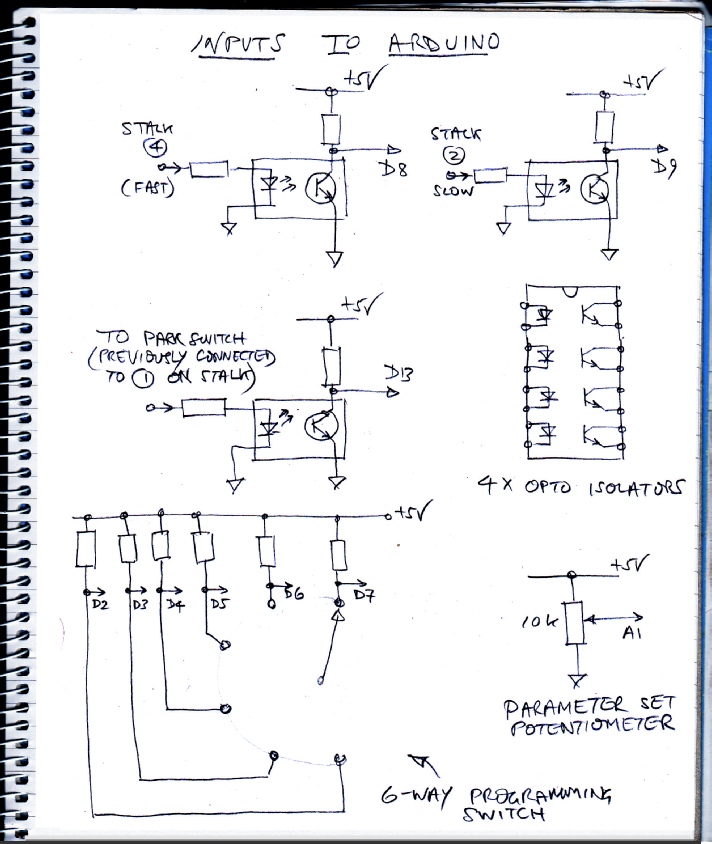 INPUTS TO ARDUINO
+5V
STALK
4
(FAST)
D8
+5V
STALK
2
SLOW
D9
+5V
TO PARK SWITCH
(PREVIOUSLY CONNECTED
TO 1 ON STALK)
D13
4 X OPTO ISOLATORS
+5V
D2 D3 D4 D5 D6 D7
+5V
10K
A1
PARAMETER SET
POTENTIOMETER
6-WAY PROGRAMMING
SWITCH